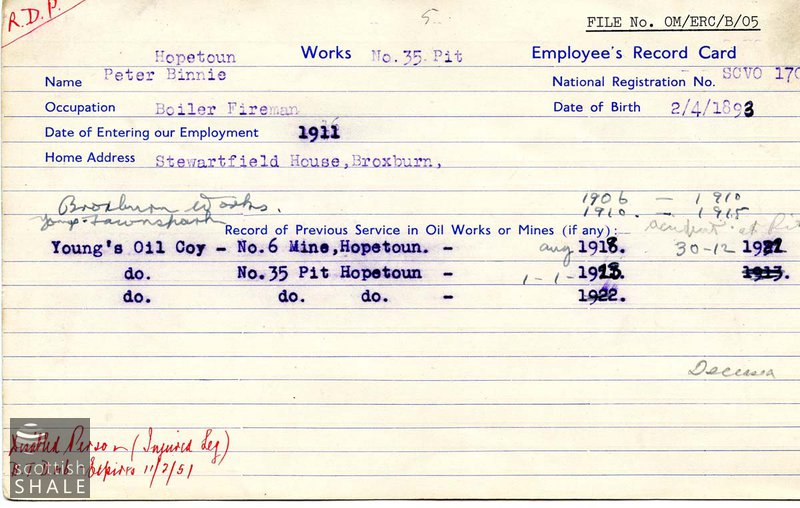 R.D.P.
5
FILE No. OM/ERC/B/05
Hopetoun Works No.35 Pit Employee's Record Card
Name Peter Binnie National Registration No. SCVO 170
Occupation Boiler Fireman Date of Birth 2/4/1893
Date of Entering our Employment 1911
Home Address Stewartfield House,Broxburn,
Broxburn Works. 1906 — 1910
1910. — 1915
Record of Previous Service in Oil Works or Mines (if any):— at Pit
Young's Oil Coy - No.6 Mine,Hopetoun. - aug 1918. 30-12 1921
do. No.35 Pit Hopetoun - 1-1- 1913.
do. do. do. - 1922.
Disabled Person (Injured Leg)
Expires 11/2/51
scottish
SHALE